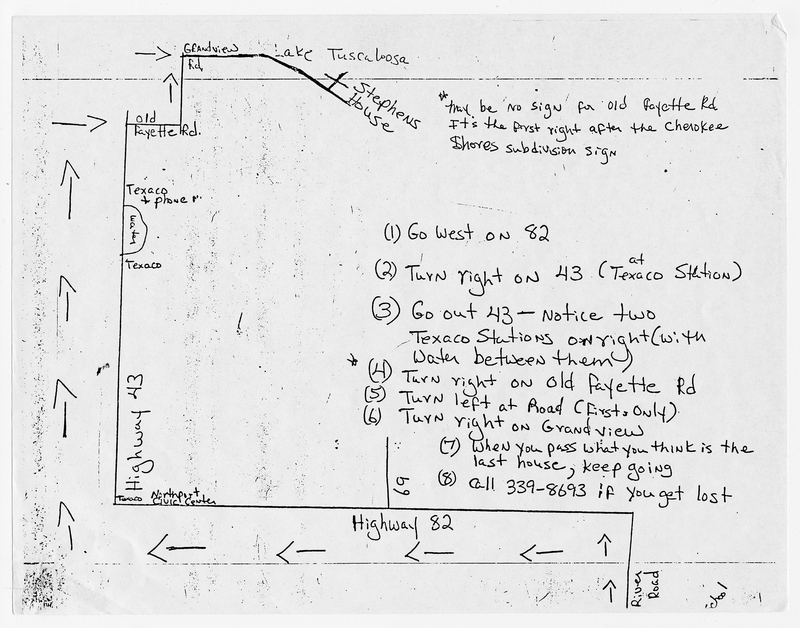 Grandview
Rd.
Lake Tuscaloosa
Stephens
House
* May be no sign for Old Fayette Rd
It's the first right after the Cherokee
Shores subdivision sign
Old
Fayette Rd.
Texaco
+ phone
Water
Texaco
(1) Go West on 82
(2) Turn right on 43 (at Texaco Station)
(3) Go out 43 — Notice two
Texaco Stations on right (with
Water between them)
* (4) Turn right on Old Fayette Rd
(5) Turn left at Road (First & Only)
(6) Turn right on Grandview
(7) When you pass what you think is the
last house, keep going
(8) Call 339-8693 if you get lost
Highway 43
Texaco
Northport
Civic Center
69
Highway 82
River
Road